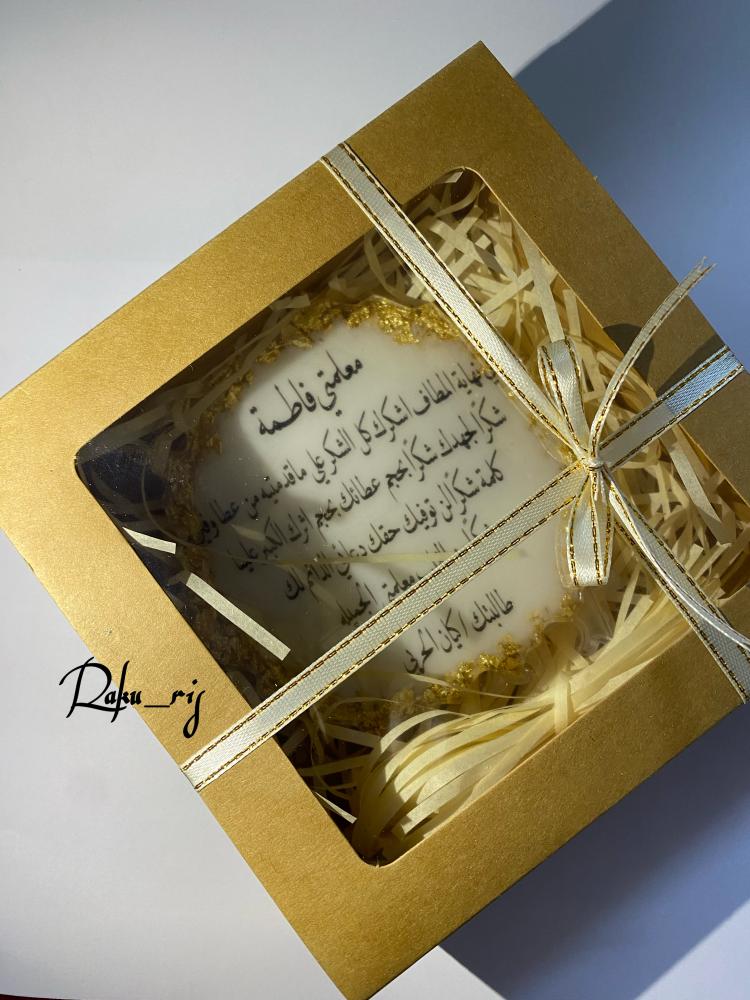 معلمتي فاطمة
نهاية المطاف اشكرك كل الشكر على ماقدمتيه من عطا وفير
شكرًا لجهدك شكرًا بحجم عطائك بحجم اثرك الكبير علينا
كلمة شكرًا لن توفيك حقك دعائي الدائم لك
معلمتي الجميله
طالبتك اكنان الحربي
Raku_rij